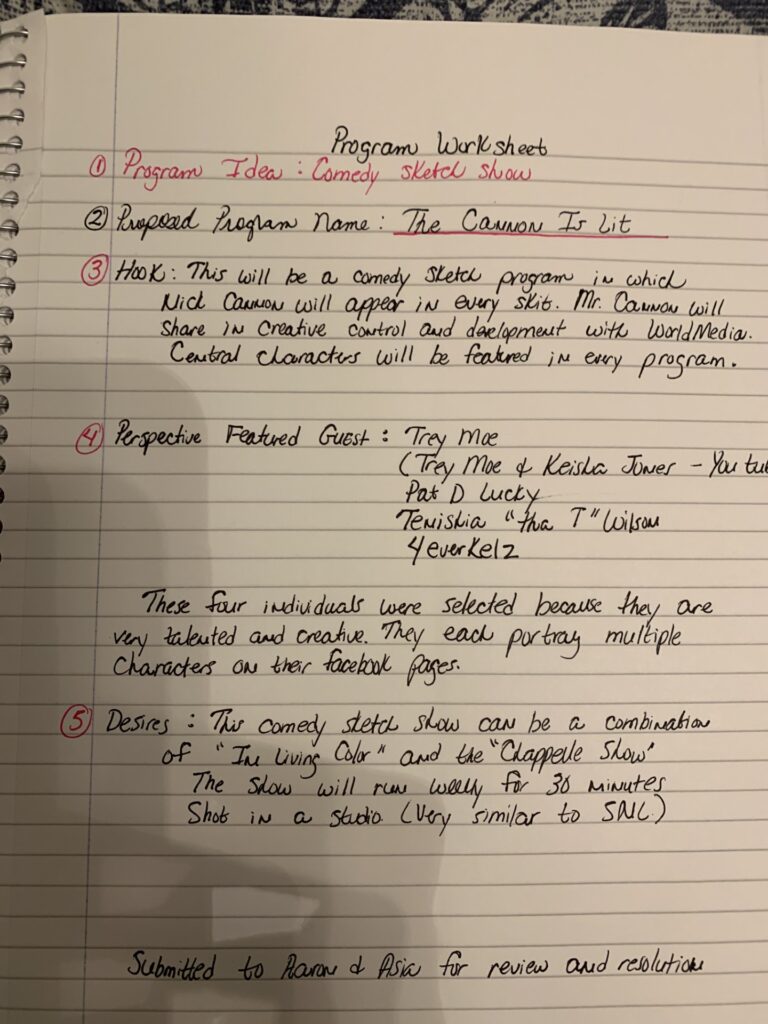 Program Worksheet
① Program Idea : Comedy sketch show
② Proposed Program Name : The Cannon Is Lit
③ Hook : This will be a comedy sketch program in which
Nick Cannon will appear in every skit. Mr. Cannon will
share in creative control and development with WorldMedia.
Central characters will be featured in every program.
④ Perspective Featured Guest : Trey Moe
(Trey Moe & Keisha Jones - You tu
Pat D Lucky
Tenishia "tha T" Wilson
4everkelz
These four individuals were selected because they are
very talented and creative. They each portray multiple
characters on their facebook pages.
⑤ Desires : This comedy sketch show can be a combination
of "In Living Color" and the "Chappelle Show"
The show will run weekly for 30 minutes
Shot in a studio (Very similar to SNL)
Submitted to Aaron & Asia for review and resolution